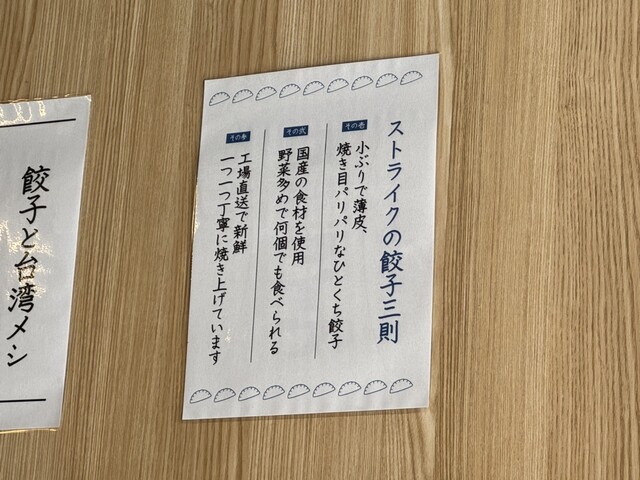 ストライクの餃子三則
その壱
小ぶりで薄皮、
焼き目パリパリなひとくち餃子
その弐
国産の食材を使用
野菜多めで何個でも食べられる
その参
工場直送で新鮮
一つ一つ丁寧に焼き上げています
餃子と台湾メシ